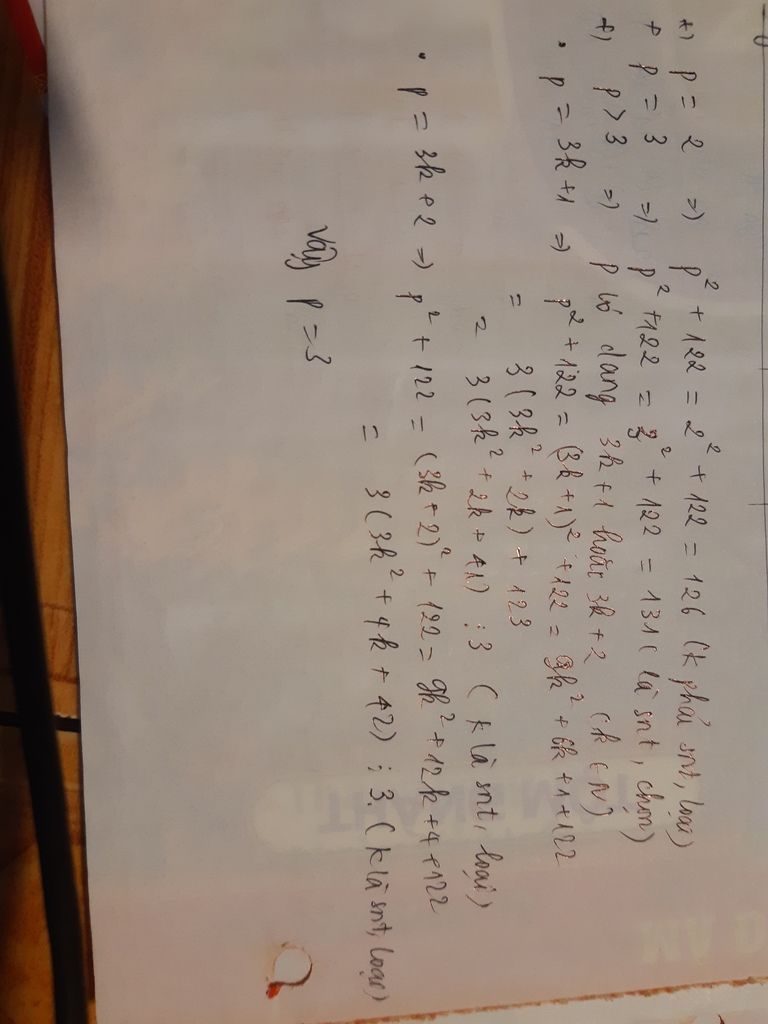 +) p = 2 => p² + 122 = 2² + 122 = 126 (k phải snt, loại)
+ p = 3 => p² + 122 = 3² + 122 = 131 (là snt, chọn)
+) p > 3 => p có dạng 3k+1 hoặc 3k+2 (k ∈ N)
• p = 3k+1 => p² + 122 = (3k+1)² + 122 = 9k² + 6k + 1 + 122
= 3(3k² + 2k) + 123
= 3(3k² + 2k + 41) ⋮ 3 (k là snt, loại)
• p = 3k+2 => p² + 122 = (3k+2)² + 122 = 9k² + 12k + 4 + 122
= 3(3k² + 4k + 42) ⋮ 3. (k là snt, loại)
Vậy p = 3